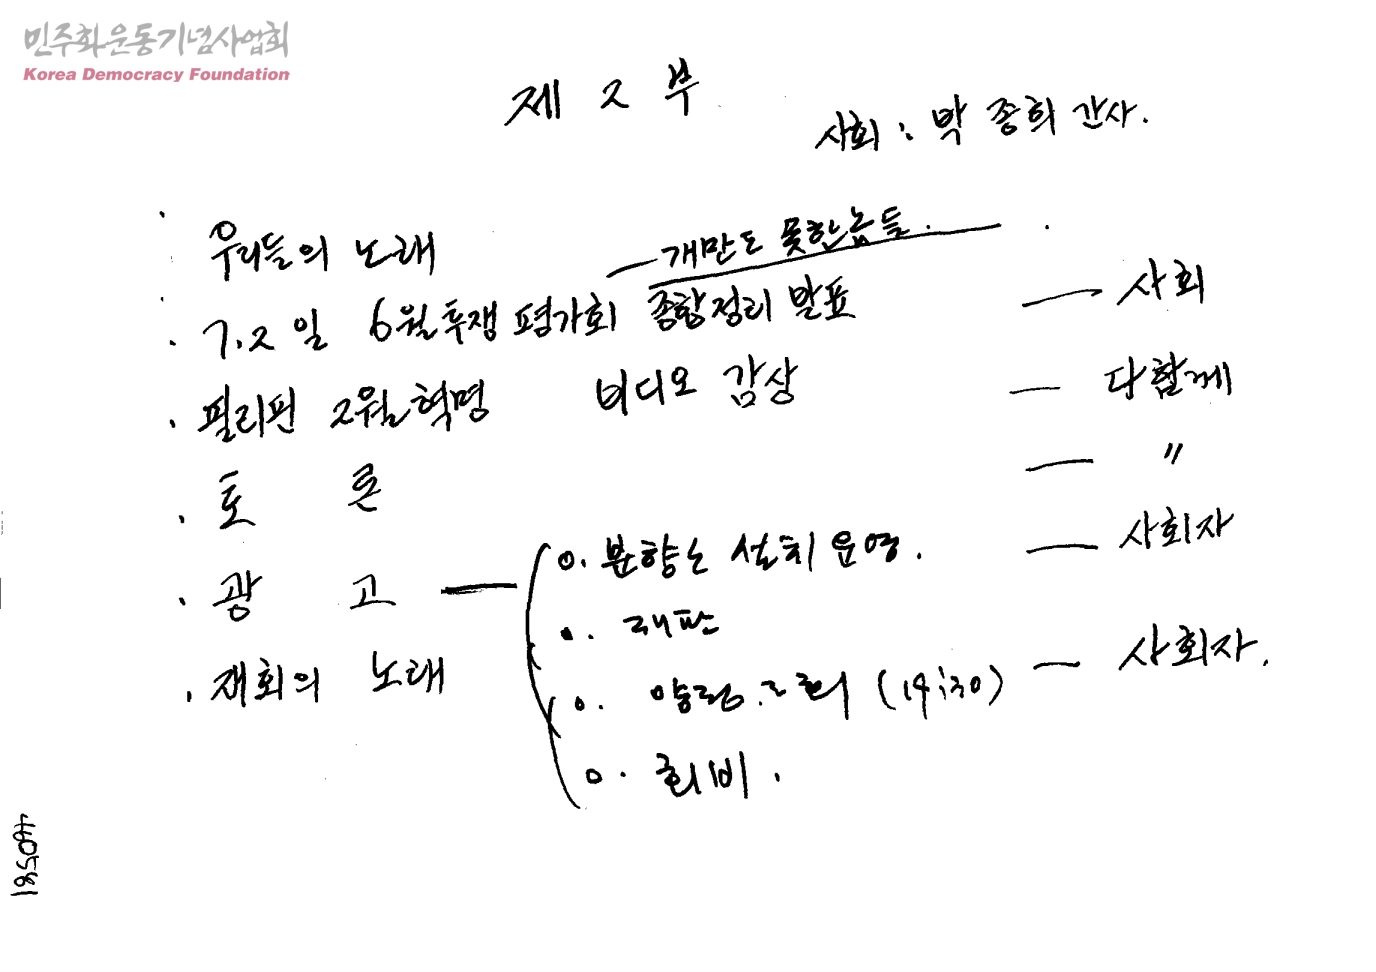 민주화운동기념사업회
Korea Democracy Foundation
제 2 부
사회 : 박 종희 간사.
우리들의 노래 — 개만도 못한놈들.
· 7.2일 6월투쟁 평가회 종합정리 발표 — 사회
· 필리핀 2월혁명 비디오 감상 — 다함께
· 토 론 — 〃
· 광 고 — o. 분향소 설치 운영. — 사회자
o. 재판
o. (14:30)
o. 회비.
· 재회의 노래 — 사회자.